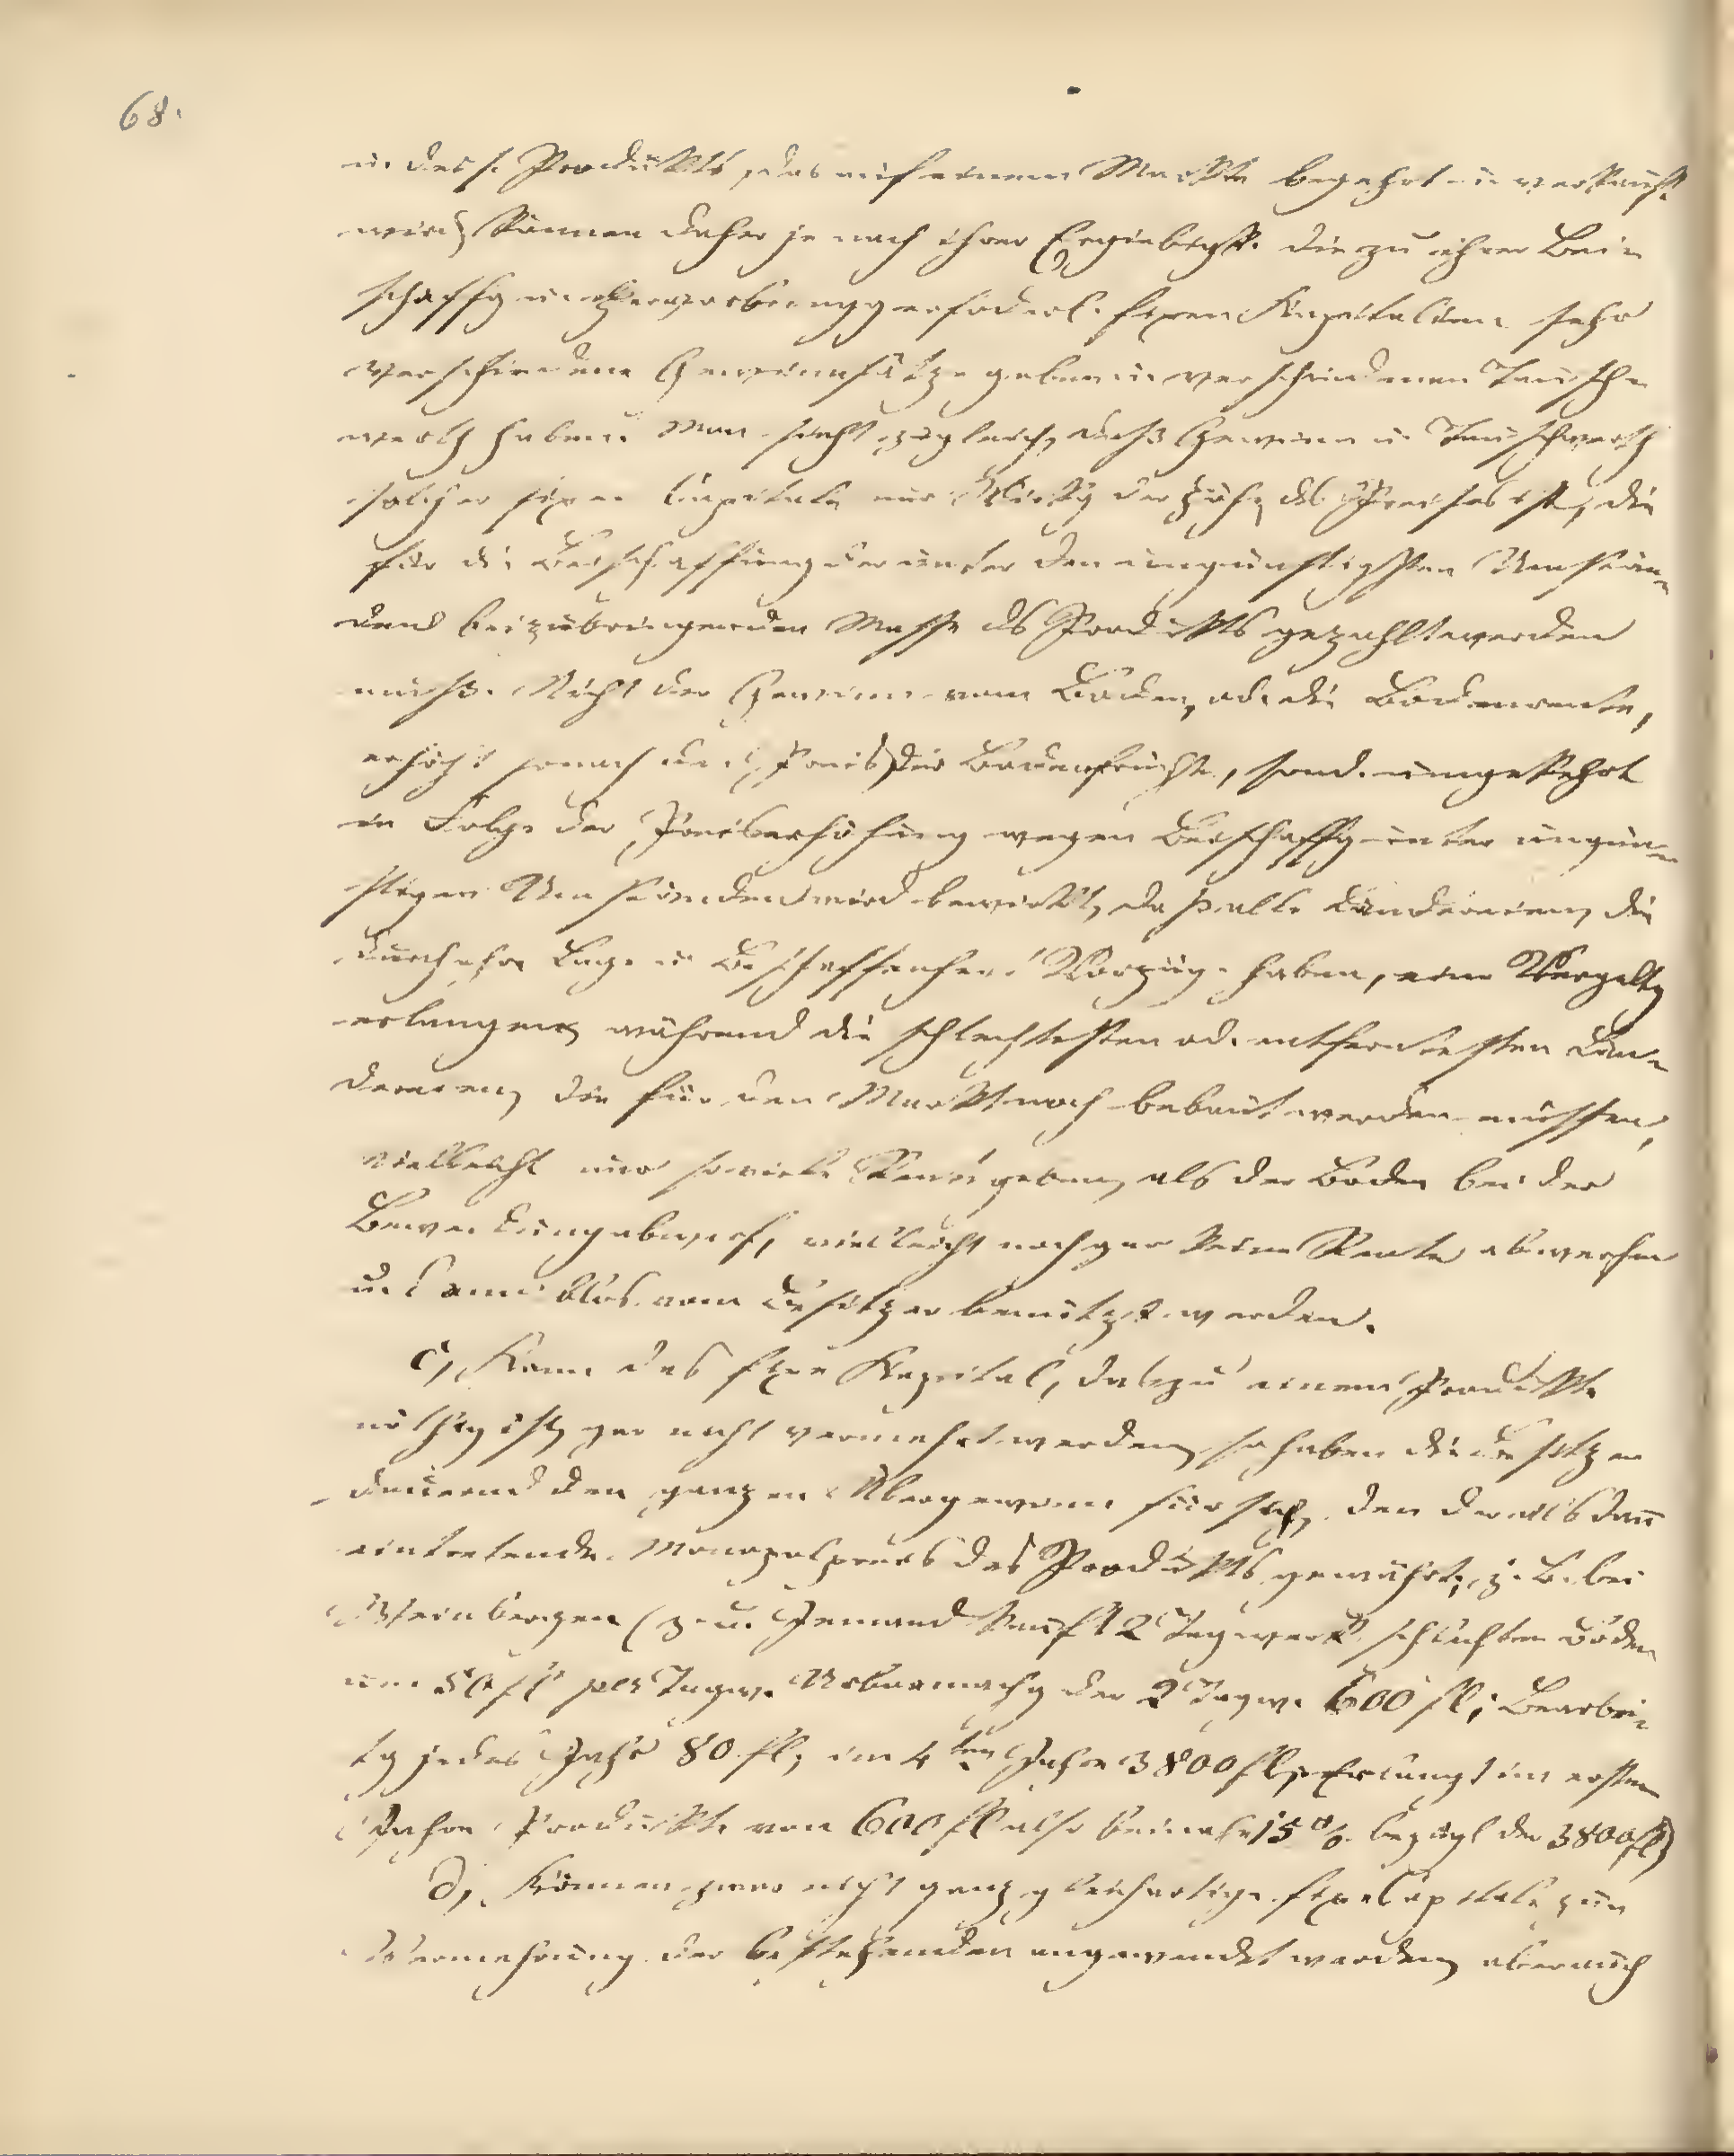 68.
u. dess. Produkts, das auf einem Markte begehrt u. verkauft
wird, können daher je nach ihrer Ergiebigk. die zu ihrer Bei=
schaffg u. Hervorbringg erfoderl. fixen Kapitalien sehr
verschiedene Gewinnsätze geben u. verschiedenen Tausch=
werth haben. Man sieht zugleich, daß Gewinn u. Tauschwerth
solcher fixen Capitale nur Wirkg der Höhe des Preises ist, die
für die Beischaffung der unter den ungünstigsten Umstän=
den beizubringenden Masse des Produkts gezahlt werden
muß. Nicht der Gewinn vom Boden, od. die Bodenrente,
erhöht sonach den Preis der Bodenfrüchte, sond. umgekehrt
in Folge der Preiserhöhung wegen Beischaffg unter ungün=
stigen Umständen wird bewirkt, daß alle Ländereien, die
durch ihre Lage u. Beschaffenheit Vorzüge haben, eine Vergeltg
erlangen, während die schlechtesten od. entferntesten Län=
dereien, die für den Markt noch bebaut werden müssen,
vielleicht nur soviele Rente geben, als der Boden bei der
Beweidung abwarf, vielleicht noch gar keine Rente abwerfen
u. dann blos vom Besitzer benützt werden.
c, Kann das fixe Kapital, das zu einem Produkte
nöthig ist, gar nicht vermehrt werden, so haben die Besitzer
dauernd den ganzen Übergewinn für sich, den der alsdann
eintretende Monopolpreis des Produkts gewährt; z. B. bei
Weinbergen (z. B. Jemand kauft 2 Tagwerk schlechten Boden
um 50 fl per Tagw. Urbarmachg der 2 Tagw. 600 fl; Bearbei=
tg jedes Jahr 80 fl; im 4ten Jahre 3800 fl; Erlangt im ersten
Jahre Produkte von 600 fl also beinahe 15 % bezügl der 3800 fl)
d, Können zwar nicht ganz gleichartige fixe Capitale zur
Vermehrung der bestehenden angewendet werden, aber auch